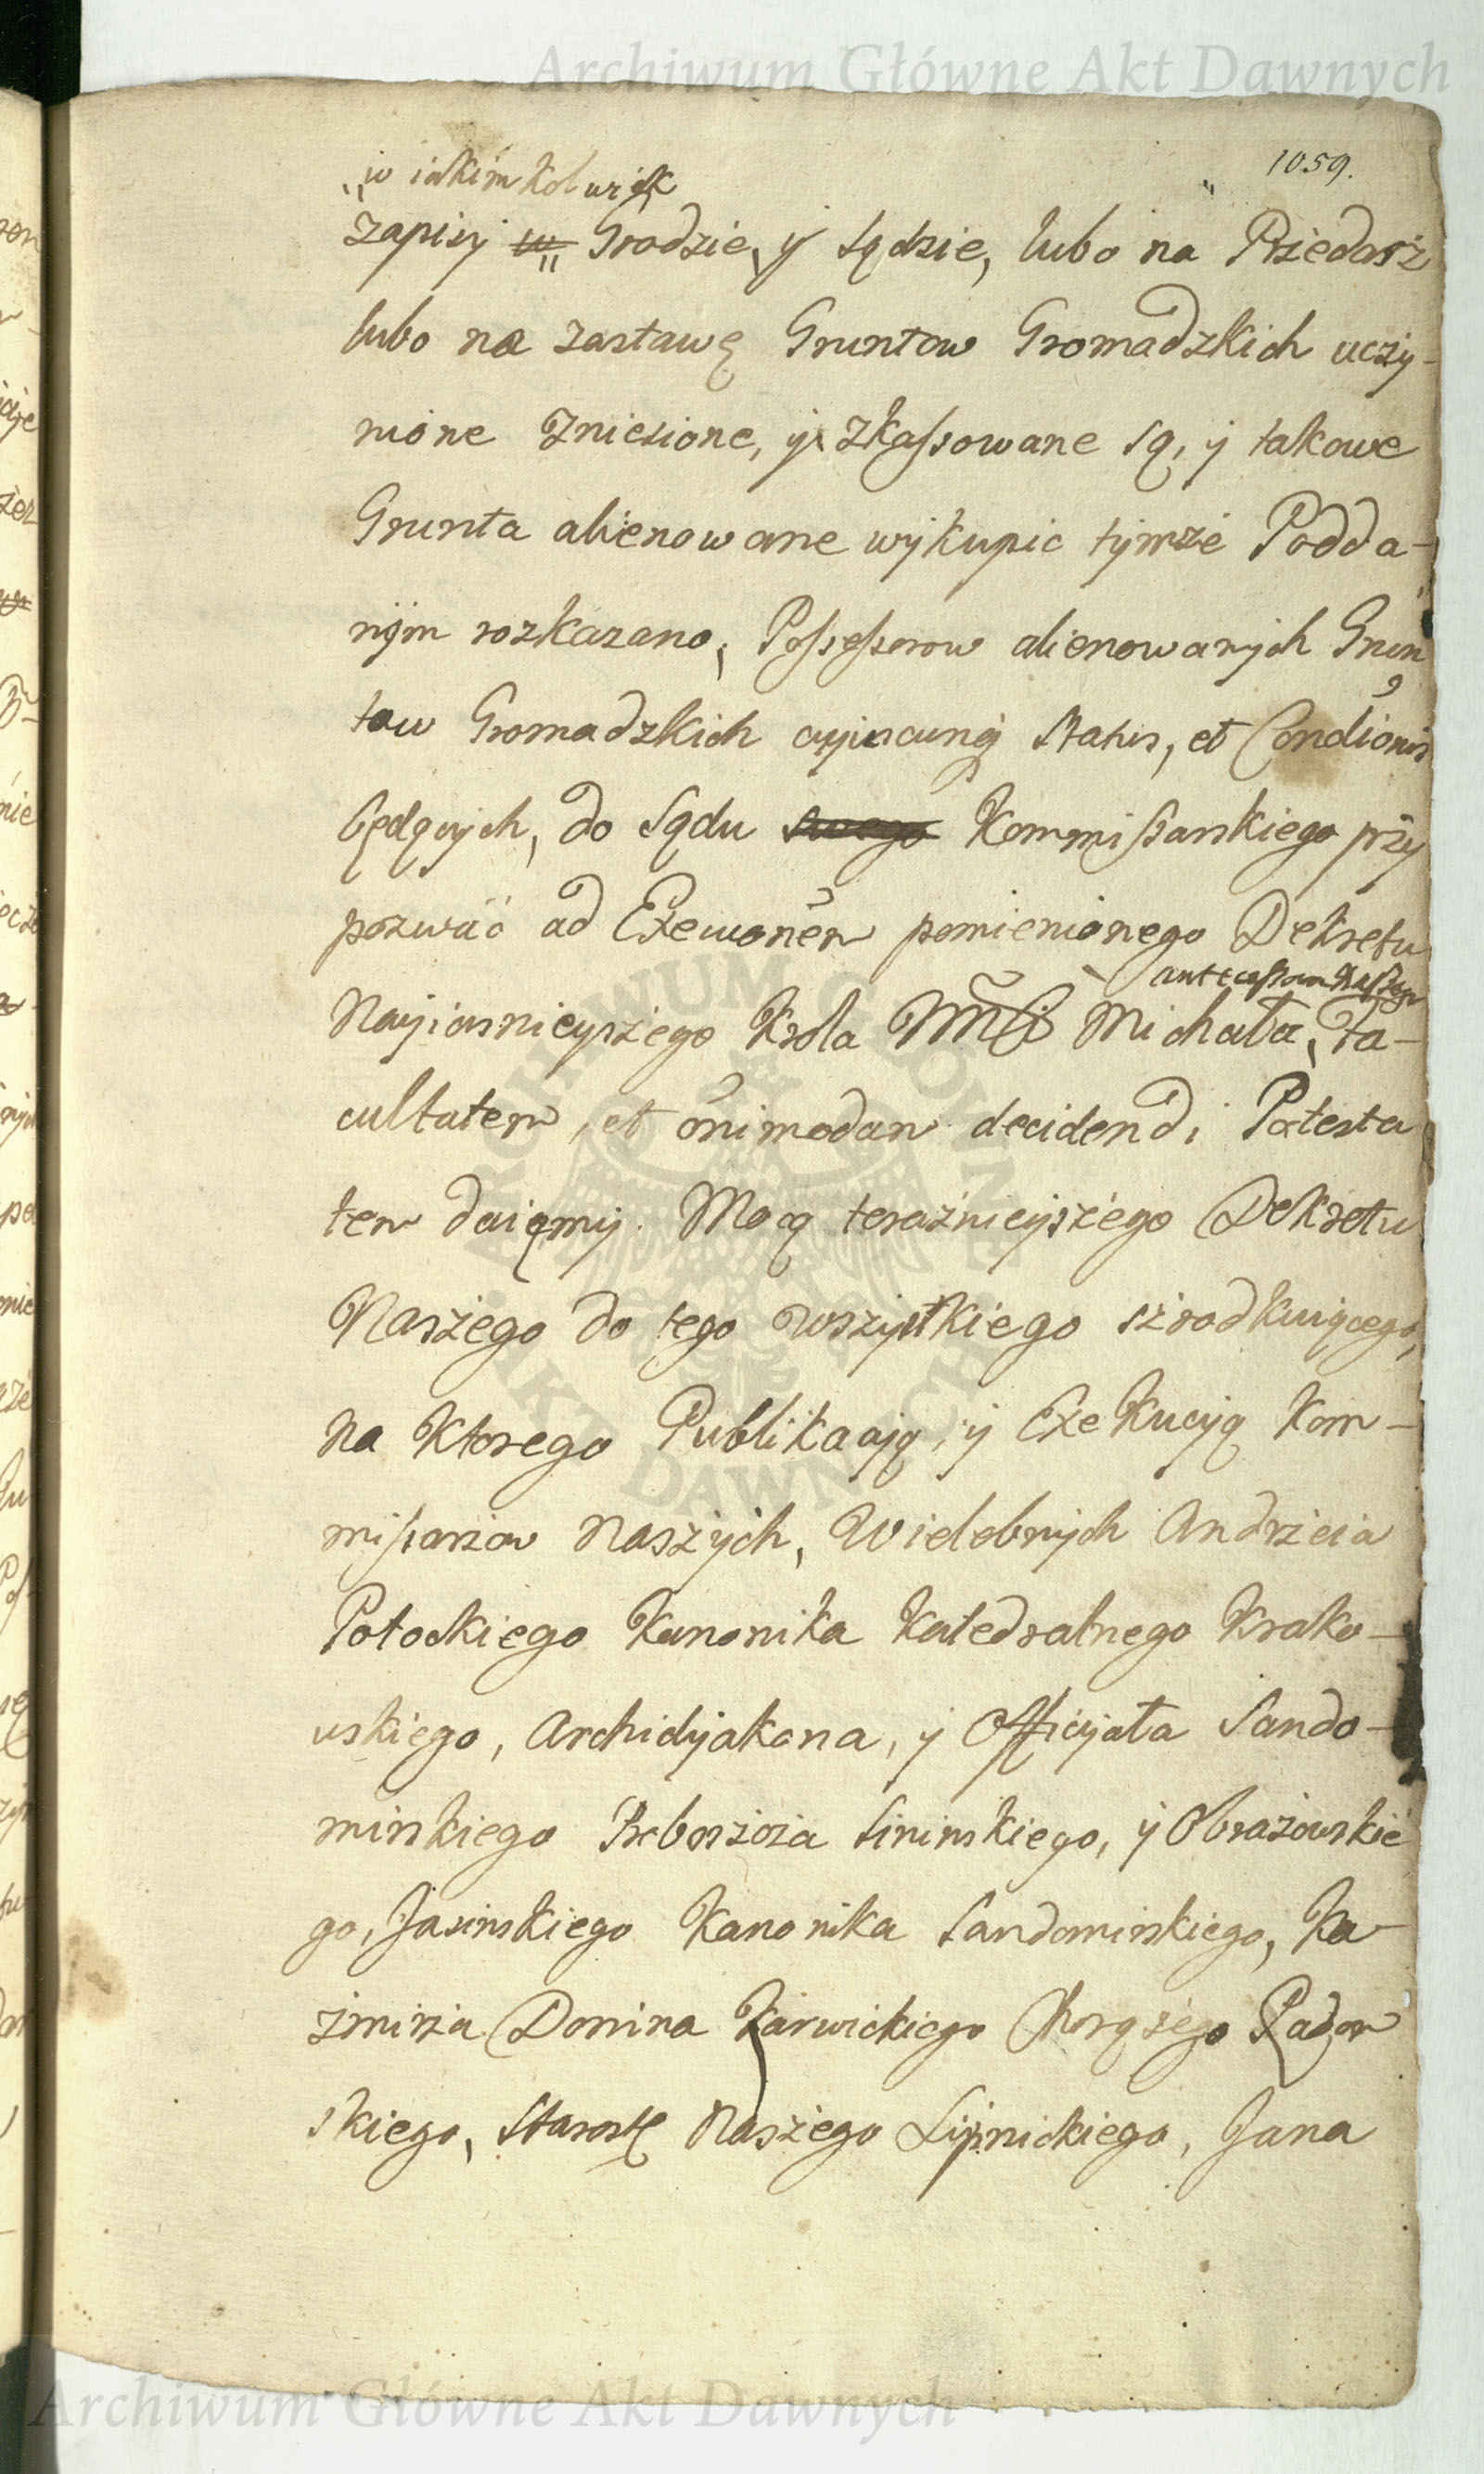 Archiwum Główne Akt Dawnych
1059.
w iakimkolwiek
zapisy w Grodzie, y Sądzie, lubo na Przedarz
lubo na zastawę Gruntow Gromadzkich uczy-
nione zniesione, y zkassowane są, y takowe
Grunta alienowane wykupic tymże Podda-
nym rozkazano, Possessorow alienowanych Grun
tow Gromadzkich cujuscunq Status, et Condionis
będących, do Sądu swego Kommissarskiego przy
pozwać ad Exeuonem pomienionego Dekretu
antecessora Naszego
Nayiasnieyszego Krola Michała, Fa-
cultatem, et onimodam decidendi Potesta
tem daiemy. Mocą teraznieyszego Dekretu
Naszego do tego wszystkiego szrodkuiącego,
na Ktorego Publikacyą, y Exekucyą Kom-
missarzow Naszych, Wielebnych Andrzeia
Potockiego Kanonika Katedralnego Krako-
wskiego, Archidyakona, y Officyała Sando-
mirskiego Proboszcza Sininskiego, y Obrazowskie
go, Jasinskiego Kanonika Sandomirskiego, Ka-
zmirza Donina Karwickiego Chorązego Radom
skiego, Starostę Naszego Lipnickiego, Jana
ARCHIWUM GŁÓWNE AKT DAWNYCH
Archiwum Główne Akt Dawnych